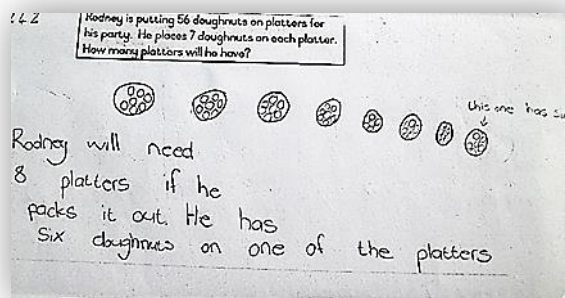 Rodney is putting 56 doughnuts on platters for
his party. He places 7 doughnuts on each platter.
How many platters will he have?
this one has
Rodney will need
8 platters if he
packs it out. He has
Six doughnuts on one of the platters